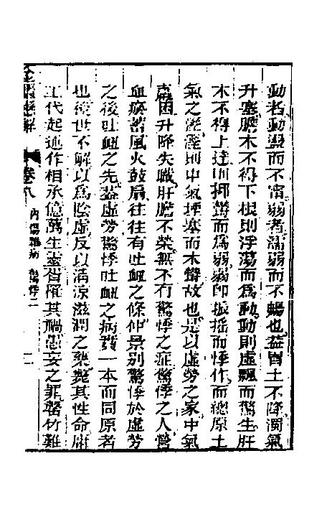 動者動盪而不甯弱者濡弱而不暢也蓋胃土不降濁氣
升塞膽木不得下根則浮蕩而爲動動則虛飄而驚生肝
木不得上達則抑鬱而爲弱弱則振搖而悸作而總原土
氣之溼溼則中氣堙塞而木鬱故也是以虛勞之家中氣
困升降失職肝膽不榮無不有驚悸之症驚悸之人營
血瘀蓄風火鼓肩往往有吐衄之條仲景別驚悸於虛勞
之後吐衄之先蓋虛勞驚悸吐衄之病實一本而同原者
也後世不解以爲陰虛反以清涼滋潤之藥斃其性命庸
工代起述作相承億萬生靈皆罹其禍愚妄之罪罄竹難
卷八 內傷雜病 驚悸